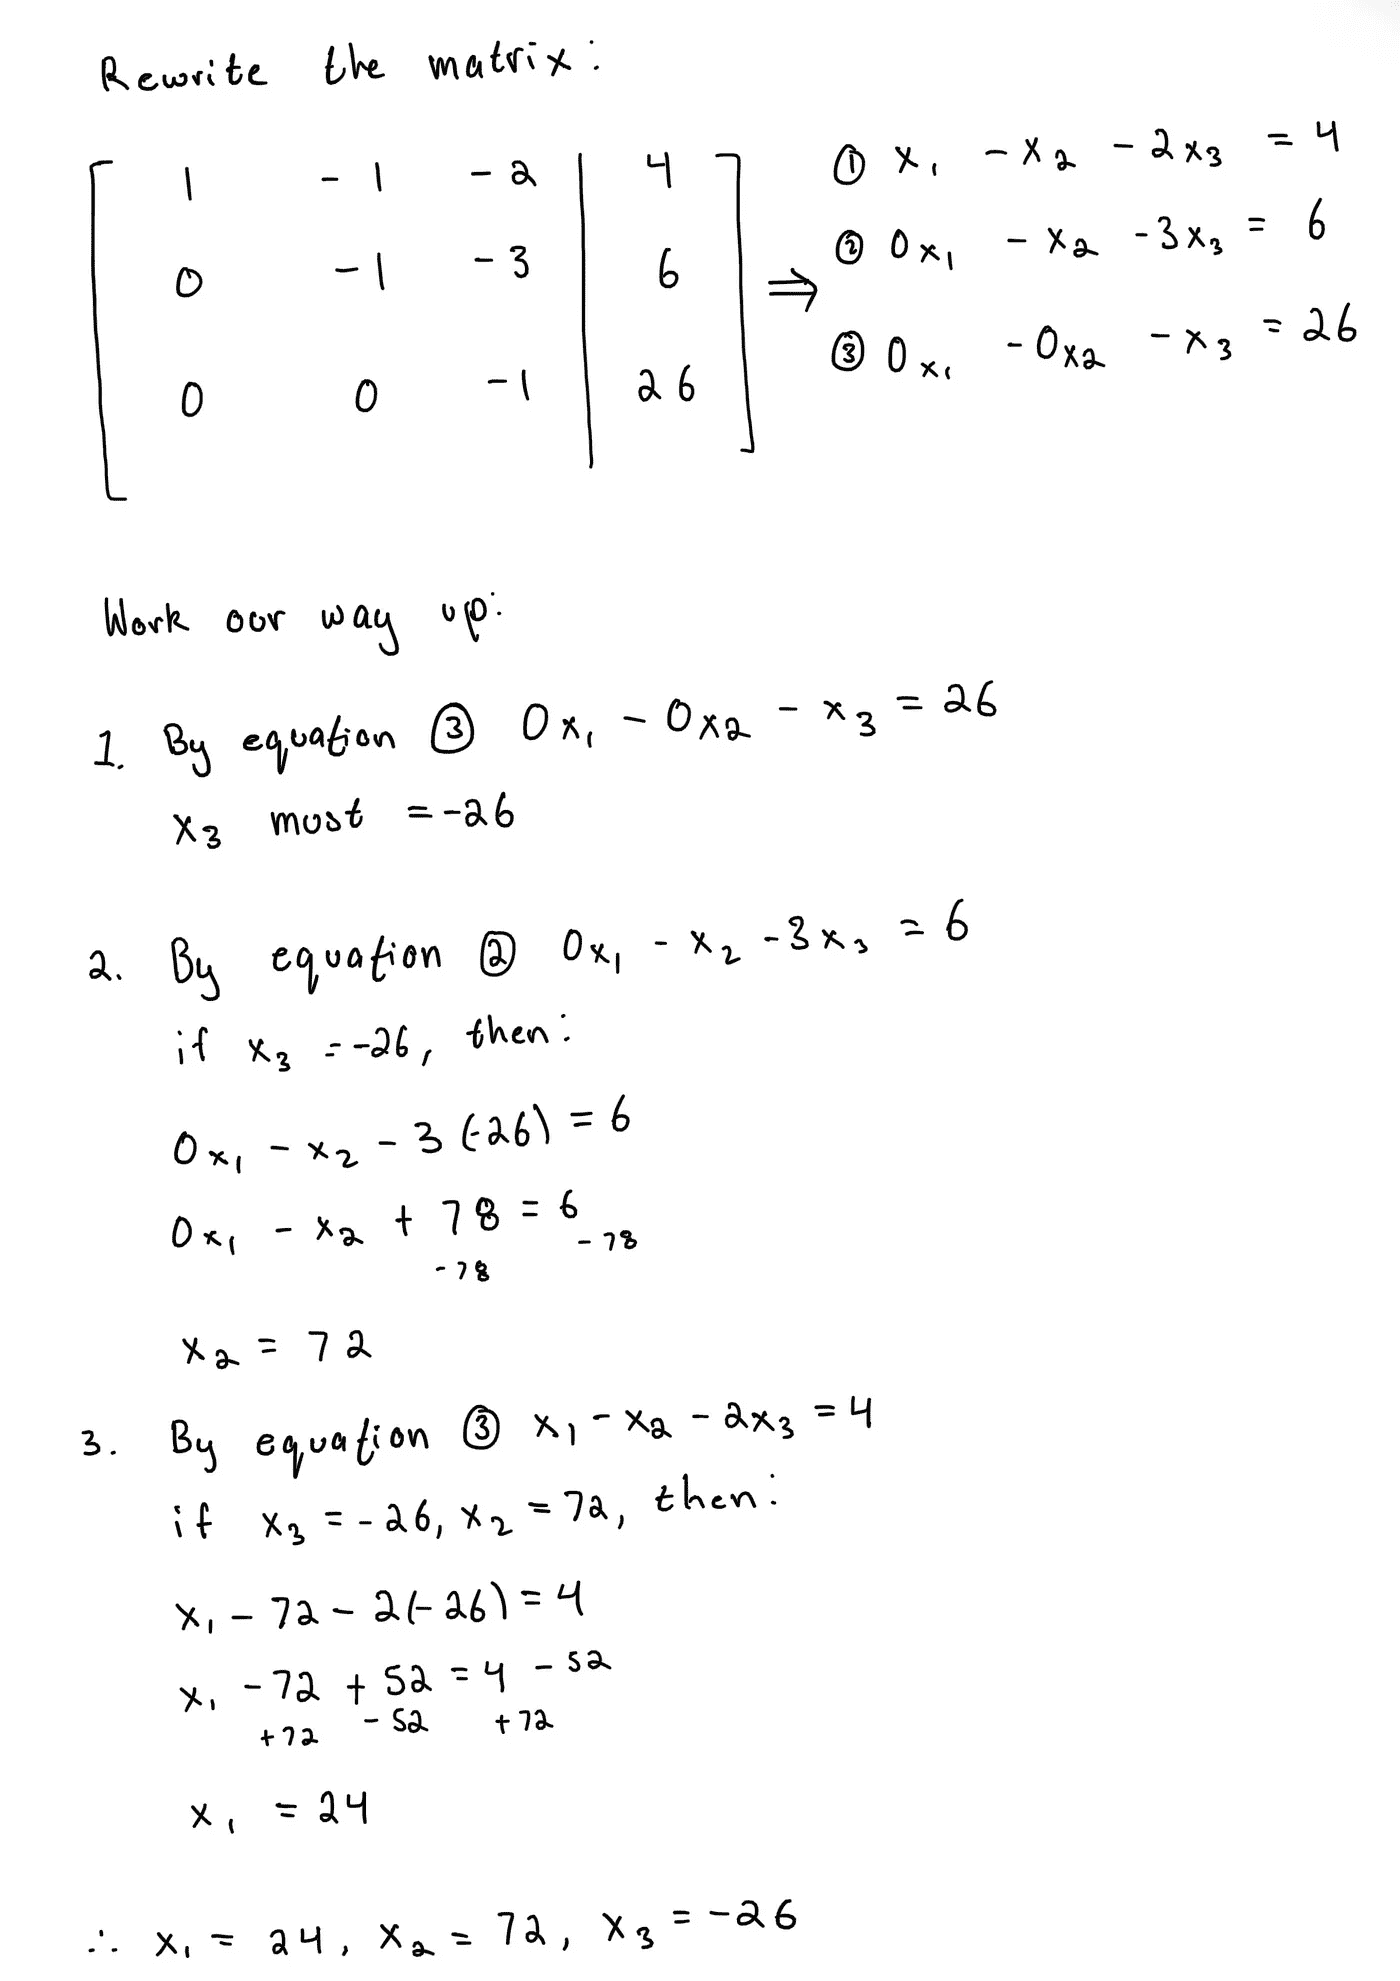 Rewrite the matrix:
1 -1 -2 | 4
0 -1 -3 | 6
0 0 -1 | 26
⇒
① x₁ - x₂ - 2x₃ = 4
② 0x₁ - x₂ - 3x₃ = 6
③ 0x₁ - 0x₂ - x₃ = 26
Work our way up:
1. By equation ③ 0x₁ - 0x₂ - x₃ = 26
x₃ must = -26
2. By equation ② 0x₁ - x₂ - 3x₃ = 6
if x₃ = -26, then:
0x₁ - x₂ - 3(-26) = 6
0x₁ - x₂ + 78 = 6
-78 -78
x₂ = 72
3. By equation ③ x₁ - x₂ - 2x₃ = 4
if x₃ = -26, x₂ = 72, then:
x₁ - 72 - 2(-26) = 4
x₁ - 72 + 52 = 4 - 52
+72 - 52 +72
x₁ = 24
∴ x₁ = 24, x₂ = 72, x₃ = -26